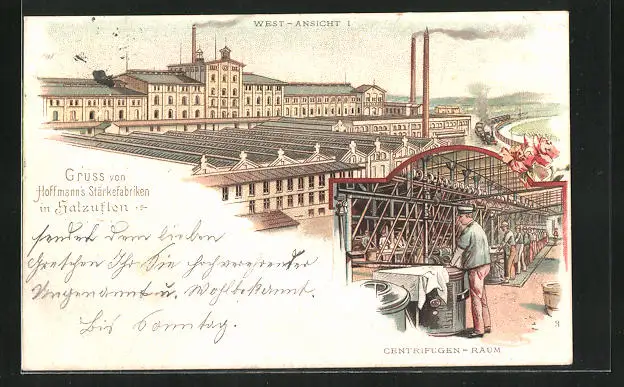 WEST-ANSICHT I
Gruss von
Hoffmann's Stärkefabriken
in Salzuflen
sendet dem lieben
Gretchen Ihr Sie hochverehrender
Ungenannt u. Wohlbekannt.
Bis Sonntag.
CENTRIFUGEN-RAUM
3